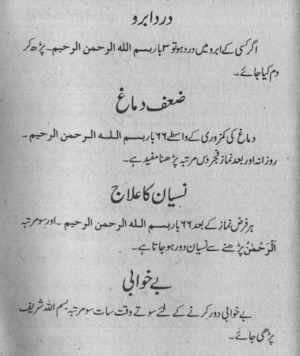 درد ابرو
اگر کسی کے ابرو میں درد ہو تو ۳ بار بسم الله الرحمن الرحیم ۔ پڑھ کر
دم کیا جائے۔
ضعف دماغ
دماغ کی کمزوری کے واسطے ۶۶ بار بسم اللہ الرحمن الرحیم ۔
روزانہ اور بعد نماز فجر دس مرتبہ پڑھنا مفید ہے۔
نسیان کا علاج
ہر فرض نماز کے بعد ۶۶ بار بسم الله الرحمن الرحیم ۔ اور سو مرتبہ
اَلرَّحْمٰنُ پڑھنے سے نسیان دور ہو جاتا ہے۔
بے خوابی
بے خوابی دور کرنے کے لئے سوتے وقت سات سو مرتبہ بسم اللہ شریف
پڑھی جائے۔